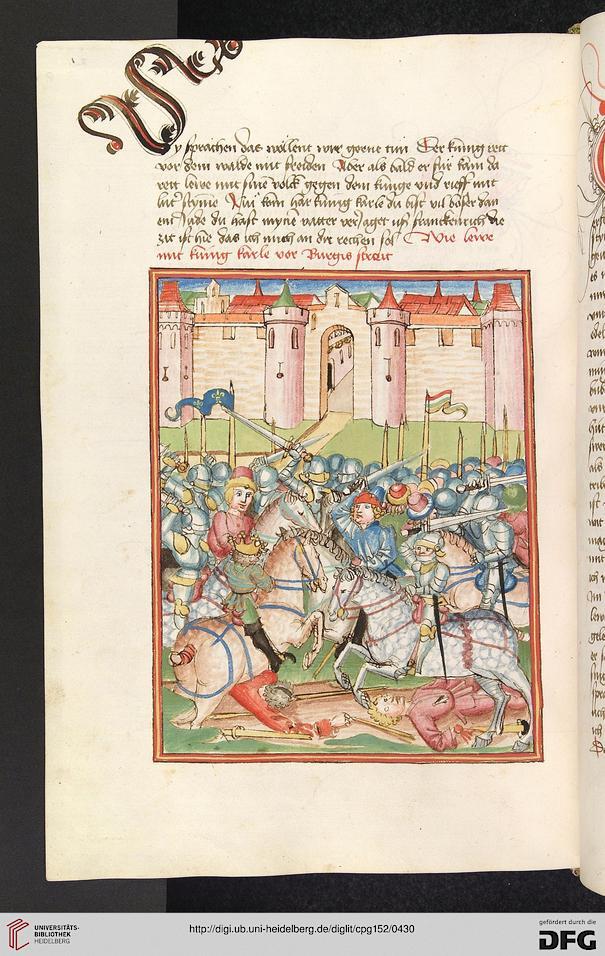 Sy sprachen das wöllent wir gerne tun Der kunig reit
vor dem walde mit frolden Aber als bald er für kam da
reit lewe mit sine volck gegen dem kunge vnd rieff mit
luter stymme Nu kom har kunig karle du bist vil böser dan
ein Jude du hast mynen vatter verJaget usz franckenrich die
zit ist hie das ich mich an dir rechen sol Wie lewe
mit kunig karle vor Burgis streit
UNIVERSITÄTS-
BIBLIOTHEK
HEIDELBERG
http://digi.ub.uni-heidelberg.de/diglit/cpg152/0430
gefördert durch die
DFG